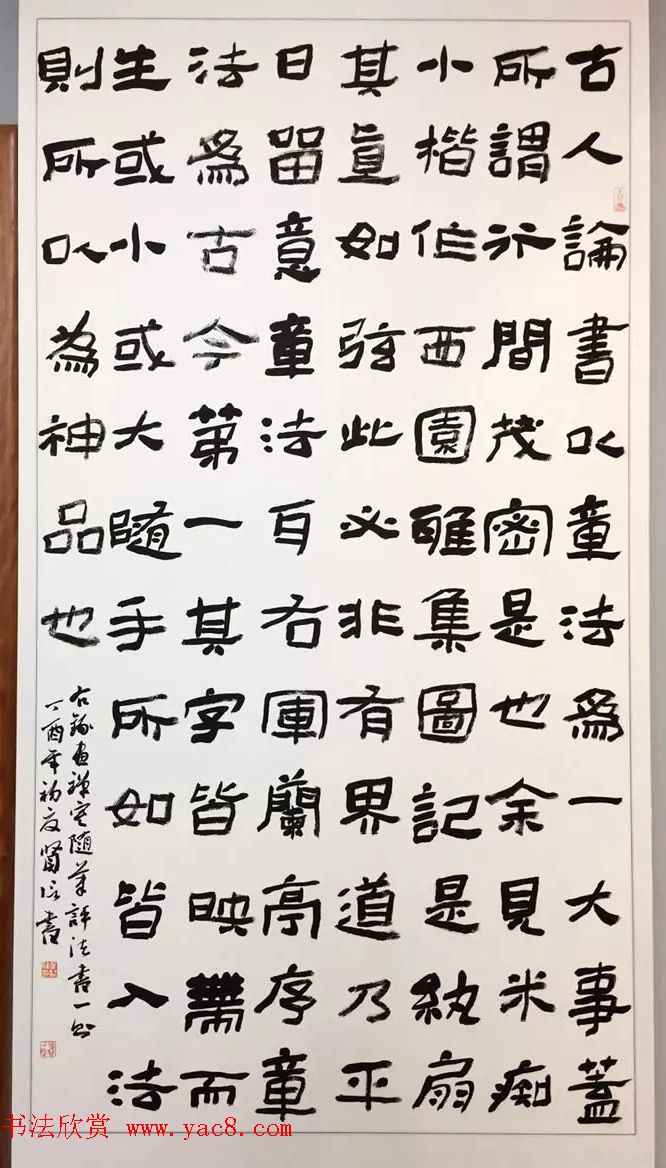 古人論書以章法爲一大事蓋
所謂行間茂密是也余見米痴
小楷作西園雅集圖記是紈扇
其直如弦此必非有界道乃平
日留意章法耳右軍蘭亭序章
法爲古今第一其字皆映帶而
生或小或大隨手所如皆入法
則所以為神品也
右錄畫禪室隨筆評法書一則
丁酉年初夏賢書
书法欣赏 www.yac8.com